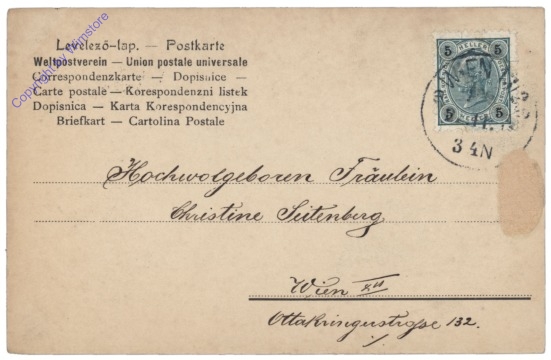 Levelező-lap. — Postkarte
Weltpostverein — Union postale universale
Correspondenzkarte — Dopisnice —
Carte postale — Korespondenzni listek
Dopisnica — Karta Korespondencyjna
Briefkart — Cartolina Postale
Copyright by Wimstore
5 5
HELLER
5 5
WIEN
3 4N
Hochwolgeboren Fräulein
Christine Seitenberg
Wien
Ottakringerstraße 132.